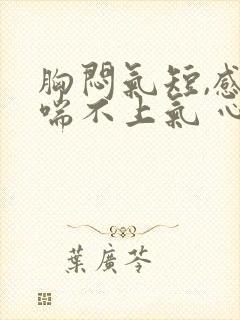 胸悶氣短,感
喘不上氣 心
葉廣芩